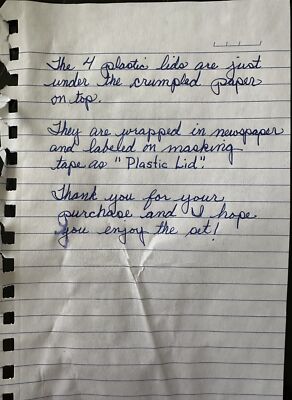 The 4 plastic lids are just
under the crumpled paper
on top.
They are wrapped in newspaper
and labeled on masking
tape as "Plastic Lid".
Thank you for your
purchase and I hope
you enjoy the set!